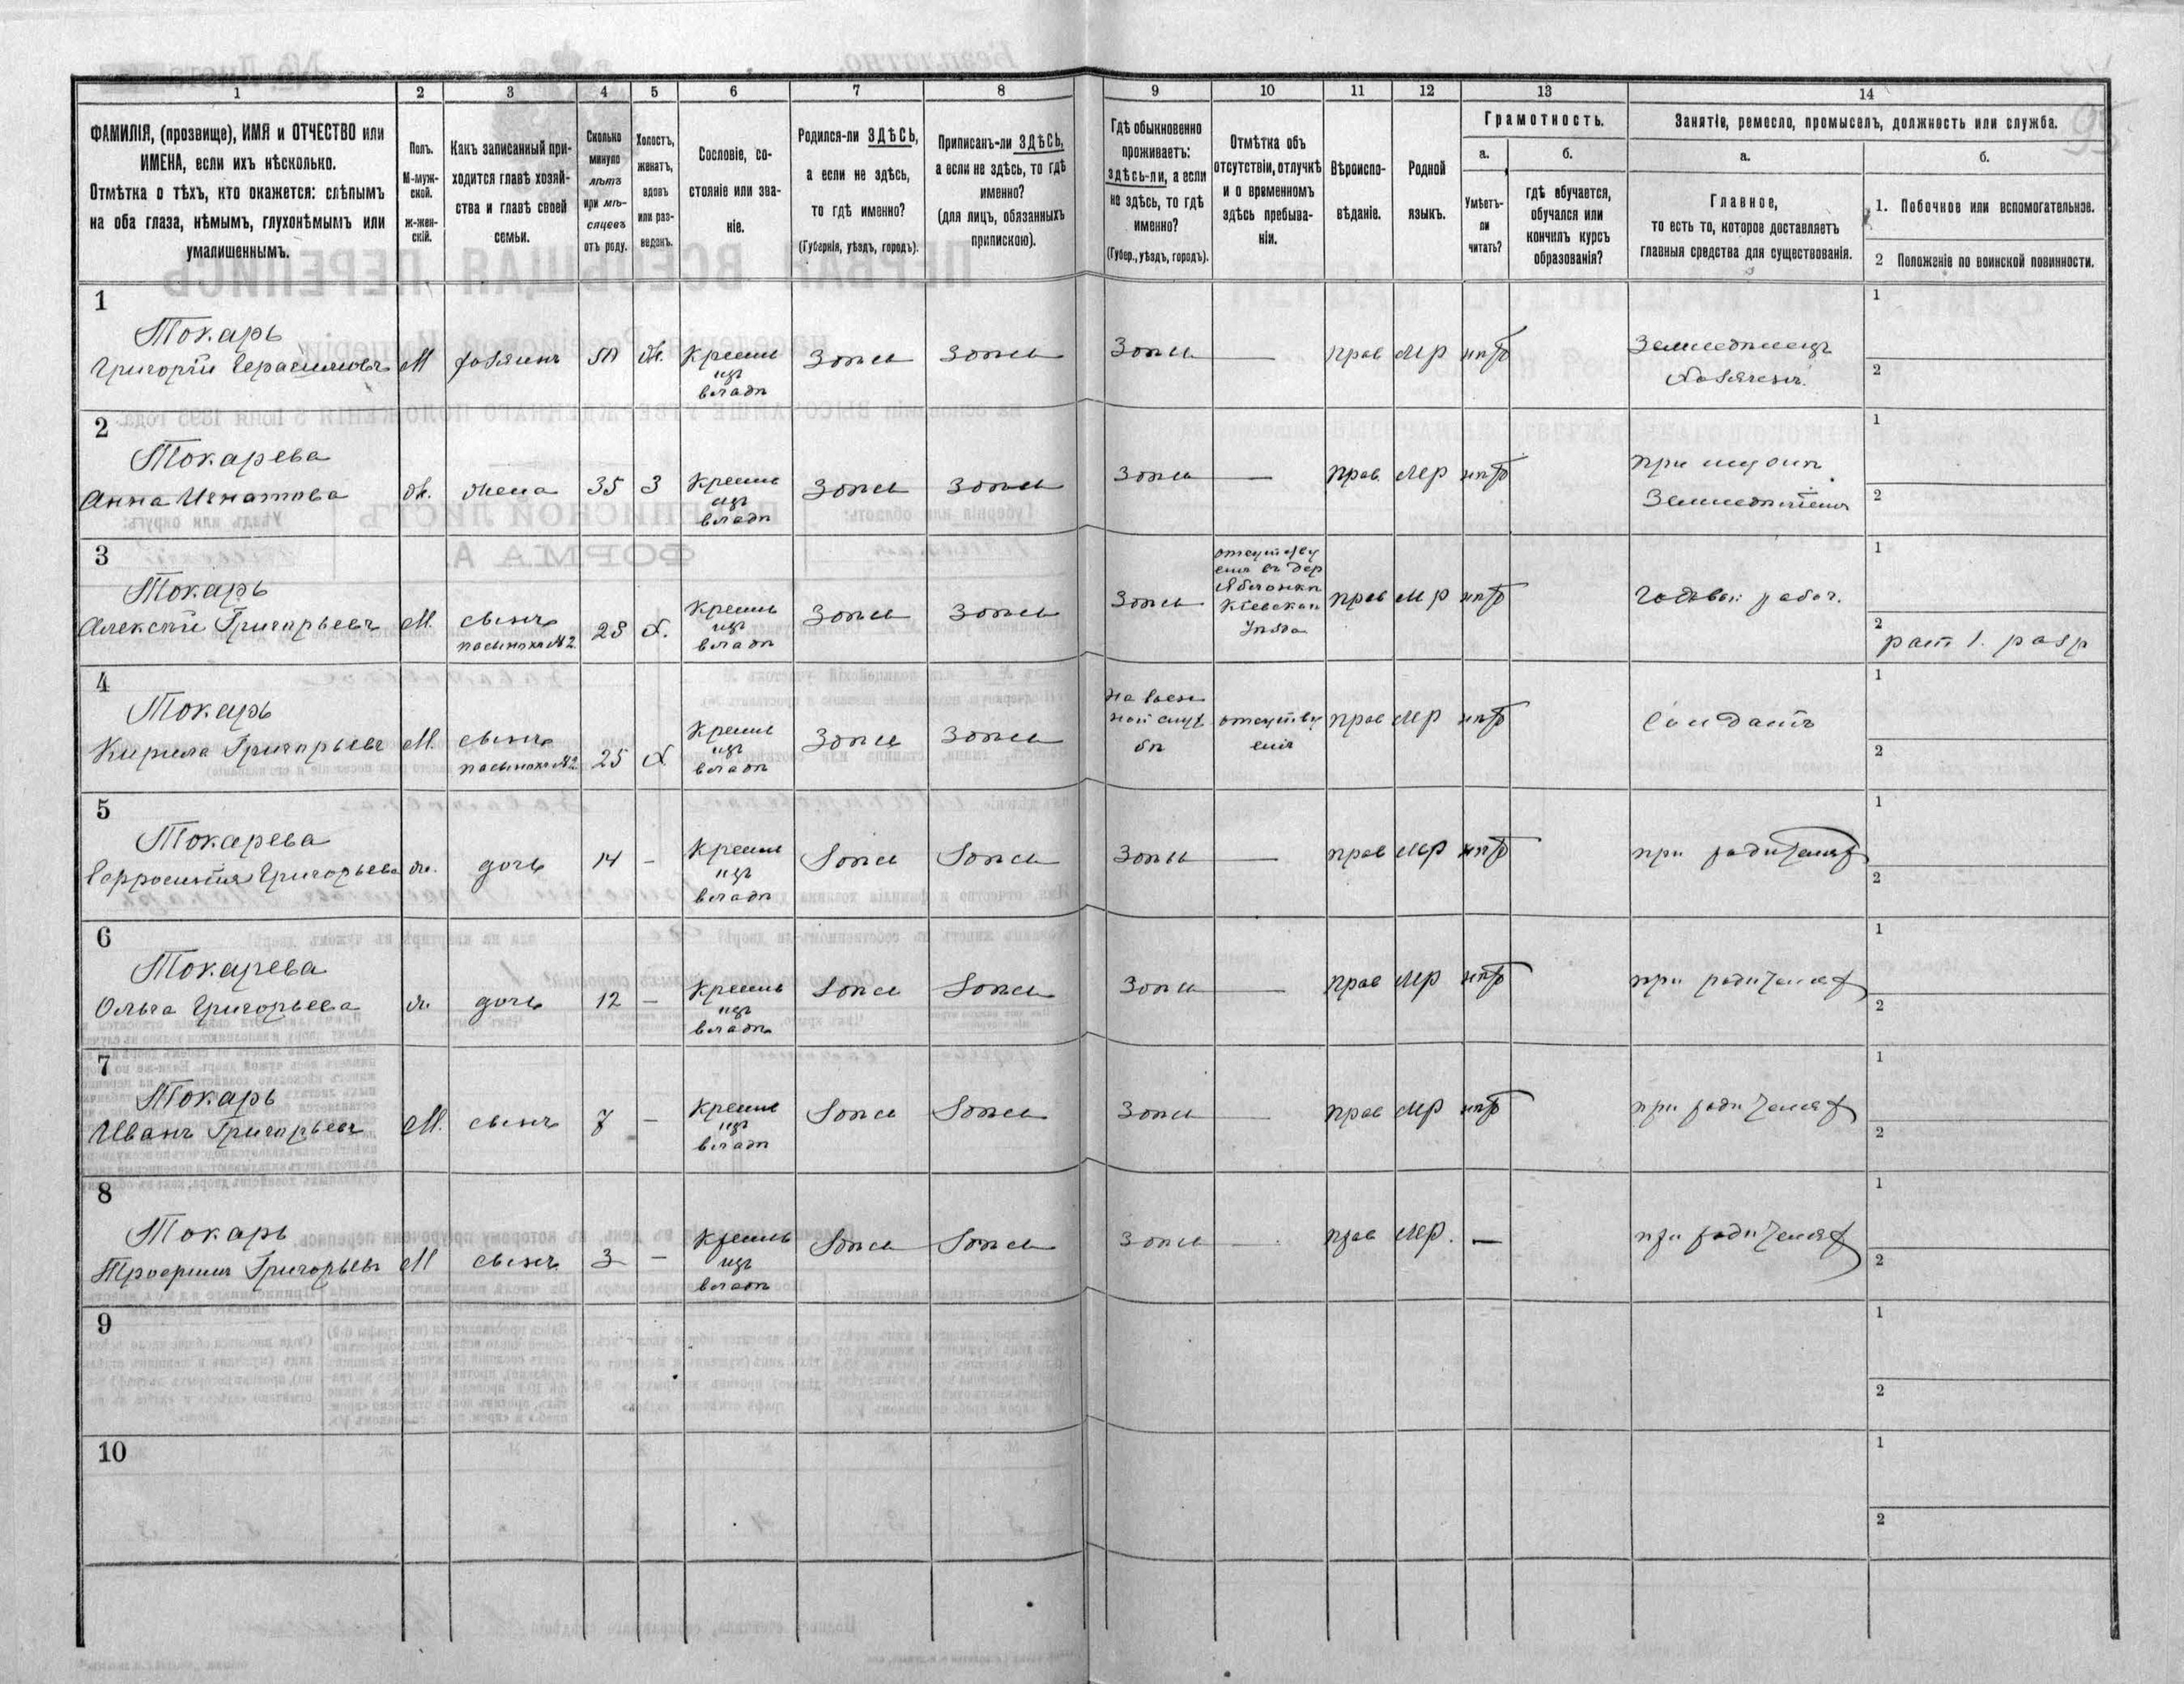 1 2 3 4 5 6 7 8 9 10 11 12 13 14
ФАМИЛІЯ, (прозвище), ИМЯ и ОТЧЕСТВО или
ИМЕНА, если ихъ нѣсколько.
Отмѣтка о тѣхъ, кто окажется: слѣпымъ
на оба глаза, нѣмымъ, глухонѣмымъ или
умалишеннымъ.
Полъ.
М-муж-
ской.
ж-жен-
скій.
Какъ записанный при-
ходится главѣ хозяй-
ства и главѣ своей
семьи.
Сколько
минуло
лѣтъ
или мѣ-
сяцевъ
отъ роду.
Холостъ,
женатъ,
вдовъ
или раз-
веденъ.
Сословіе, со-
стояніе или зва-
ніе.
Родился-ли ЗДѢСЬ,
а если не здѣсь,
то гдѣ именно?
(Губернія, уѣздъ, городъ).
Приписанъ-ли ЗДѢСЬ,
а если не здѣсь, то гдѣ
именно?
(для лицъ, обязанныхъ
припискою).
Гдѣ обыкновенно
проживаетъ:
здѣсь-ли, а если
не здѣсь, то гдѣ
именно?
(Губер., уѣздъ, городъ).
Отмѣтка объ
отсутствіи, отлучкѣ
и о временномъ
здѣсь пребыва-
ніи.
Вѣроиспо-
вѣданіе.
Родной
языкъ.
Грамотность.
а.
Умѣетъ-
ли
читать?
б.
гдѣ обучается,
обучался или
кончилъ курсъ
образованія?
Занятіе, ремесло, промыселъ, должность или служба.
а.
Главное,
то есть то, которое доставляетъ
главныя средства для существованія.
б.
1. Побочное или вспомогательное.
2 Положеніе по воинской повинности.
95
1
Токарь
Григорій Герасимовъ М хозяинъ 50 ж. Крестьян
изъ
владѣ здѣсь здѣсь здѣсь — прав мр нѣтъ Земледѣлецъ
хозяинъ
1
2
2
Токарева
Анна Игнатова ж. жена 35 З Крестьян
изъ
владѣ здѣсь здѣсь здѣсь — прав. мр нѣтъ при мужѣ
Земледѣлія
1
2
3
Токарь
Алексѣй Григорьевъ М. сынъ
пасынокъ №2 28 х. Крестьян
изъ
владѣ здѣсь здѣсь здѣсь отсутству
енъ въ дер
Яблонкѣ
Кіевскаго
Уѣзда прав мр нѣтъ годовой рабоч.
1
2
рат 1. разр
4
Токарь
Кирила Григорьевъ М. сынъ
пасынокъ №2 25 х Крестьян
изъ
владѣ здѣсь здѣсь на воен
ной служ
бѣ отсутству
енъ прав мр нѣтъ Солдатъ
1
2
5
Токарева
Евфросинія Григорьева ж. дочь 14 — Крестьян
изъ
владѣ здѣсь здѣсь здѣсь — прав мр нѣтъ при родителях
1
2
6
Токарева
Ольга Григорьева ж. дочь 12 — Крестьян
изъ
владѣ здѣсь здѣсь здѣсь — прав мр нѣтъ при родителях
1
2
7
Токарь
Иванъ Григорьевъ М. сынъ 7 — Крестьян
изъ
владѣ здѣсь здѣсь здѣсь — прав мр нѣтъ при родителях
1
2
8
Токарь
Трофимъ Григорьевъ М сынъ 3 — Крестьян
изъ
владѣ здѣсь здѣсь здѣсь — прав мр. — при родителях
1
2
9
1
2
10
1
2